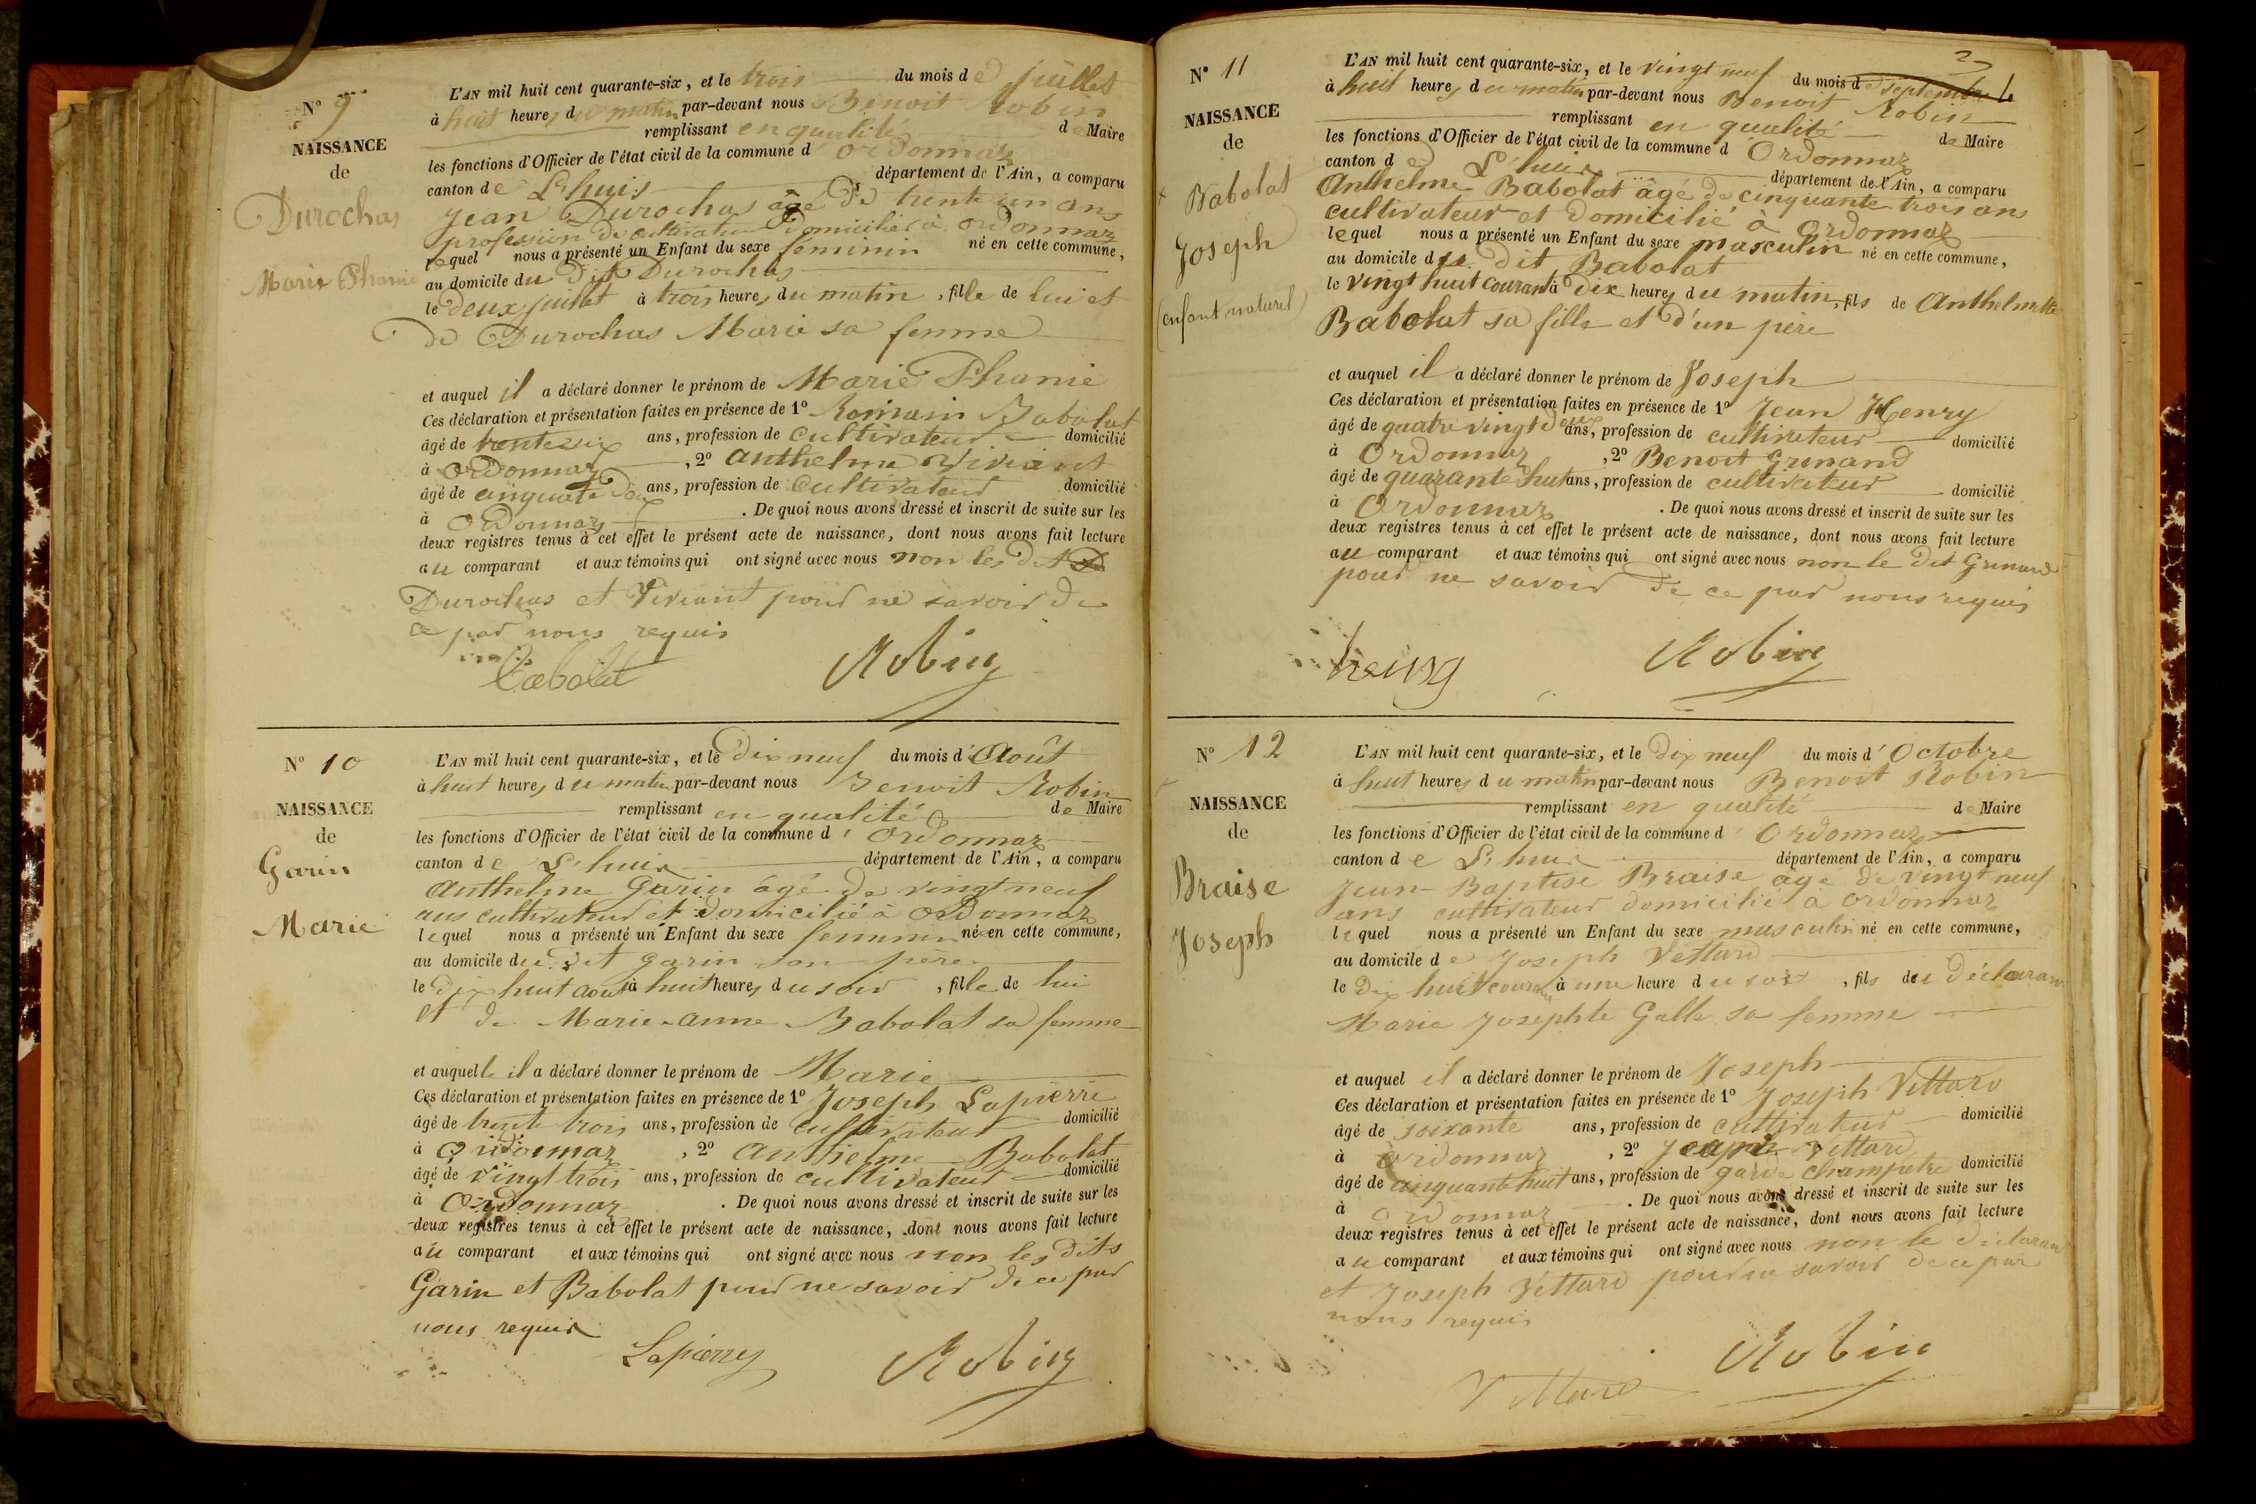 N° 9
NAISSANCE
de
Durochas
Marie Phanie
L'AN mil huit cent quarante-six, et le trois du mois de juillet
à huit heures du matin par-devant nous Benoit Robin
remplissant en qualité de Maire
les fonctions d'Officier de l'état civil de la commune d'Ordonnaz
canton de L'huis département de l'Ain, a comparu
Jean Durochas âgé de trente un ans
profession de cultivateur domicilié à Ordonnaz
lequel nous a présenté un Enfant du sexe feminin né en cette commune,
au domicile du dit Durochas
le deux juillet à trois heures du matin, fille de lui et
de Durochas Marie sa femme
et auquel il a déclaré donner le prénom de Marie Phanie
Ces déclaration et présentation faites en présence de 1° Romain Babolat
âgé de trente six ans, profession de cultivateur domicilié
à Ordonnaz, 2° Anthelme Viviant
âgé de cinquante deux ans, profession de cultivateur domicilié
à Ordonnaz. De quoi nous avons dressé et inscrit de suite sur les
deux registres tenus à cet effet le présent acte de naissance, dont nous avons fait lecture
au comparant et aux témoins qui ont signé avec nous non les dit
Durochas et Viviant pour ne savoir de
ce par nous requis
Babolat Robin
N° 10
NAISSANCE
de
Garin
Marie
L'AN mil huit cent quarante-six, et le dix neuf du mois d'Août
à huit heures du matin par-devant nous Benoit Robin
remplissant en qualité de Maire
les fonctions d'Officier de l'état civil de la commune d'Ordonnaz
canton de L'huis département de l'Ain, a comparu
Anthelme Garin âgé de vingt neuf
ans cultivateur et domicilié à Ordonnaz
lequel nous a présenté un Enfant du sexe feminin née en cette commune,
au domicile du dit Garin son père
le dix huit aout à huit heures du soir, fille de lui
et de Marie-anne Babolat sa femme
et auquelle il a déclaré donner le prénom de Marie
Ces déclaration et présentation faites en présence de 1° Joseph Lapierre
âgé de trente trois ans, profession de cultivateur domicilié
à Ordonnaz, 2° Anthelme Babolat
âgé de vingt trois ans, profession de cultivateur domicilié
à Ordonnaz. De quoi nous avons dressé et inscrit de suite sur les
deux registres tenus à cet effet le présent acte de naissance, dont nous avons fait lecture
au comparant et aux témoins qui ont signé avec nous non les dits
Garin et Babolat pour ne savoir de ce par
nous requis
Lapierre Robin
2
N° 11
NAISSANCE
de
Babolat
Joseph
(enfant naturel)
L'AN mil huit cent quarante-six, et le vingt neuf du mois de septembre
à huit heures du matin par-devant nous Benoit Robin
remplissant en qualité de Maire
les fonctions d'Officier de l'état civil de la commune d Ordonnaz
canton de L'huis département de l'Ain, a comparu
Anthelme Babolat âgé de cinquante trois ans
cultivateur et domicilié à Ordonnaz
lequel nous a présenté un Enfant du sexe masculin né en cette commune,
au domicile du dit Babolat
le vingt huit courant à dix heures du matin, fils de Anthelmette
Babolat sa fille et d'un père
et auquel il a déclaré donner le prénom de Joseph
Ces déclaration et présentation faites en présence de 1° Jean Henry
âgé de quatre vingt deux ans, profession de cultivateur domicilié
à Ordonnaz, 2° Benoit Grinand
âgé de quarante huit ans, profession de cultivateur domicilié
à Ordonnaz. De quoi nous avons dressé et inscrit de suite sur les
deux registres tenus à cet effet le présent acte de naissance, dont nous avons fait lecture
au comparant et aux témoins qui ont signé avec nous non le dit Grinand
pour ne savoir de ce par nous requis
Robin
N° 12
NAISSANCE
de
Braise
Joseph
L'AN mil huit cent quarante-six, et le dix neuf du mois d'Octobre
à huit heures du matin par-devant nous Benoit Robin
remplissant en qualité de Maire
les fonctions d'Officier de l'état civil de la commune d'Ordonnaz
canton de L'huis département de l'Ain, a comparu
Jean-Baptise Braise âgé de vingt neuf
ans cultivateur domicilié à Ordonnaz
lequel nous a présenté un Enfant du sexe masculin né en cette commune,
au domicile de Joseph Vettard
le dix huit courant à une heure du soir, fils du déclarant
Marie Josephte Galle sa femme
et auquel il a déclaré donner le prénom de Joseph
Ces déclaration et présentation faites en présence de 1° Joseph Vettard
âgé de soixante ans, profession de cultivateur domicilié
à Ordonnaz, 2° Jean Vettard
âgé de cinquante huit ans, profession de garde champetre domicilié
à Ordonnaz. De quoi nous avons dressé et inscrit de suite sur les
deux registres tenus à cet effet le présent acte de naissance, dont nous avons fait lecture
au comparant et aux témoins qui ont signé avec nous non le déclarant
et Joseph Vettard pour ne savoir de ce par
nous requis
Vettard Robin